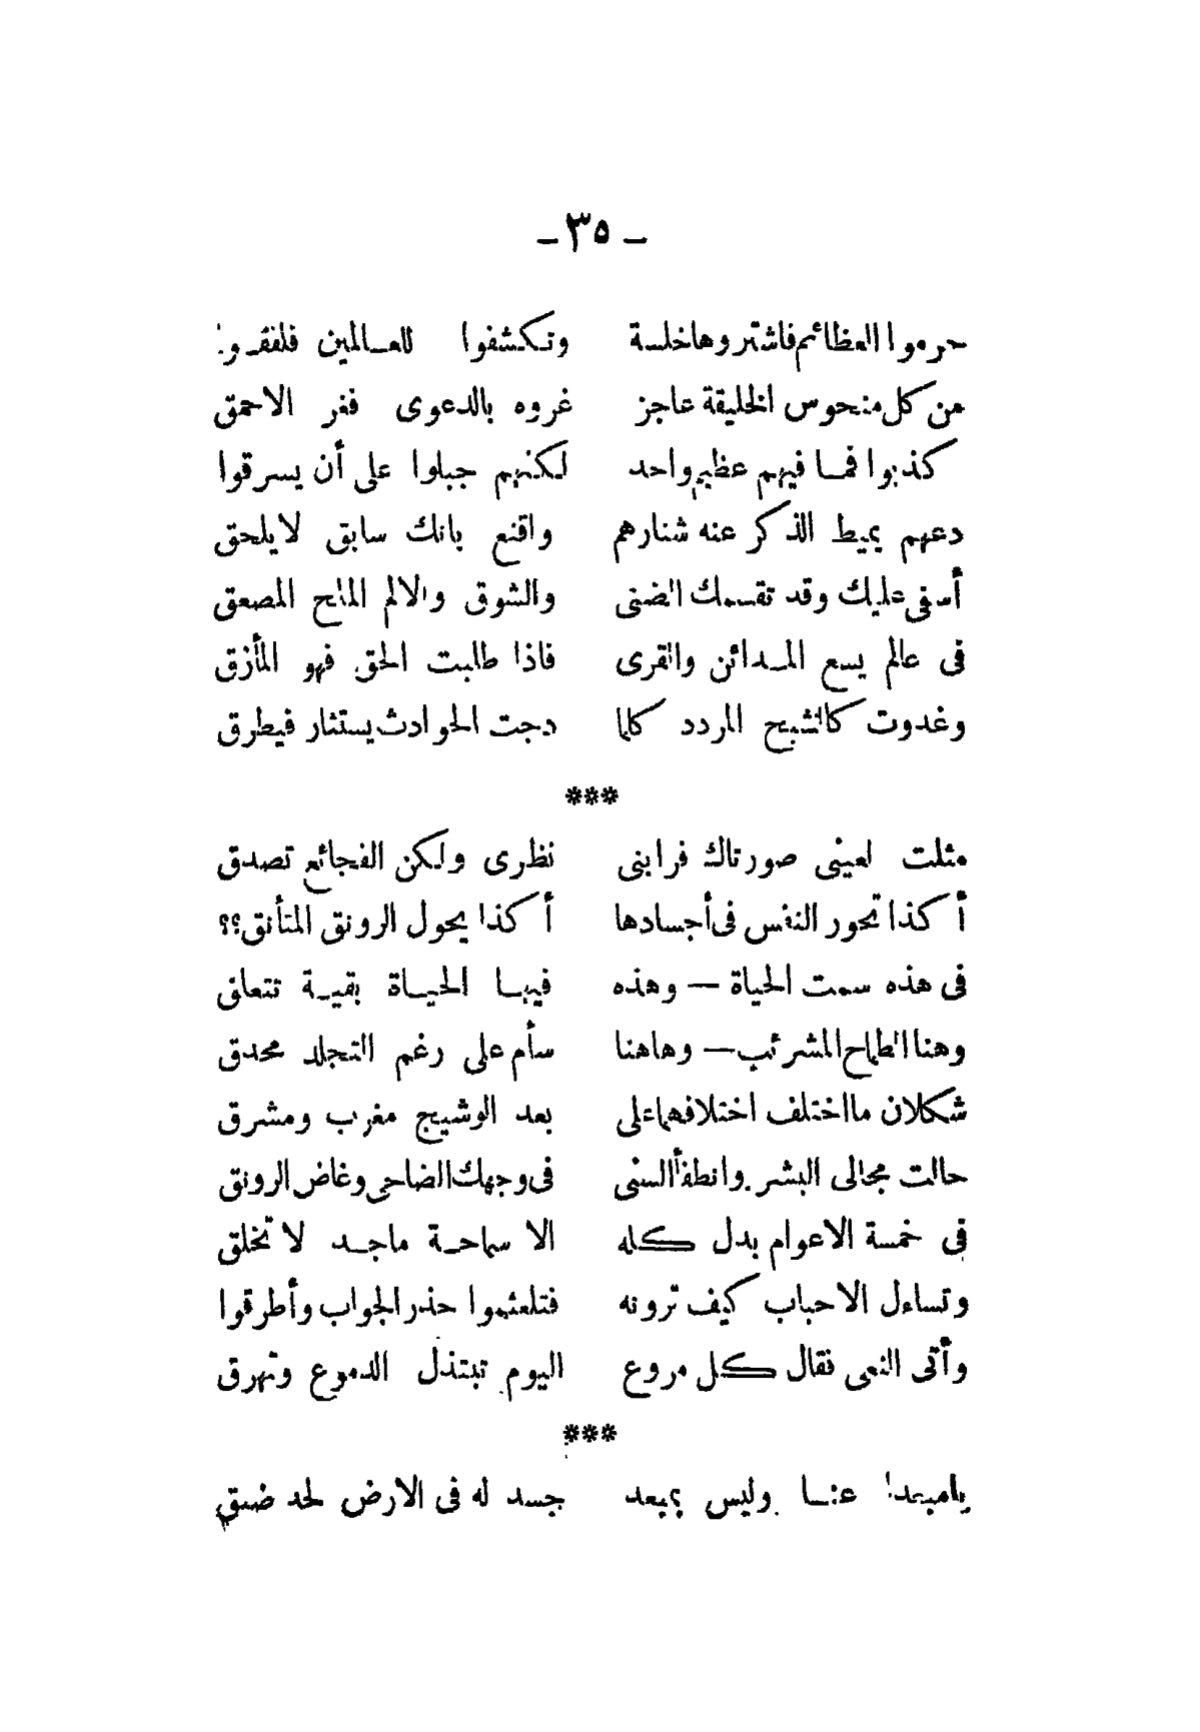 ـ ٣٥ ـ
حرموا العظائم فاشتروها خلسة وتكشفوا للعالمين فلفقوا
من كل منحوس الخليقة عاجز غروه بالدعوى فغر الاحمق
كذبوا فما فيهم عظيم واحد لكنهم جبلوا على أن يسرقوا
دعهم يميط الذكر عنه شنارهم واقنع بانك سابق لايلحق
أسفى عليك وقد تقسمك الضنى والشوق والالم الملح المصعق
فى عالم يسع المدائن والقرى فاذا طلبت الحق فهو المأزق
وغدوت كالشبح المردد كلما دجت الحوادث يستثار فيطرق
***
مثلت لعينى صورتاك فرابنى نظرى ولكن الفجائع تصدق
أكذا تحور النفس فى أجسادها أكذا يحول الرونق المتأنق؟؟
فى هذه سمت الحياة — وهذه فيها الحياة بقية تتعلق
وهنا الطماح المشرئب — وهاهنا سأم على رغم التجلد محدق
شكلان مااختلف اختلافهما على بعد الوشيج مغرب ومشرق
حالت مجالى البشر وانطفأ السنى فى وجهك الضاحى وغاض الرونق
فى خمسة الاعوام بدل كله الا سماحة ماجد لا تخلق
وتساءل الاحباب كيف ترونه فتلعثموا حذر الجواب وأطرقوا
وأتى النعى فقال كل مروع اليوم تبتذل الدموع وتهرق
***
يامبعدا عنا وليس بمبعد جسد له فى الارض لحد ضيق